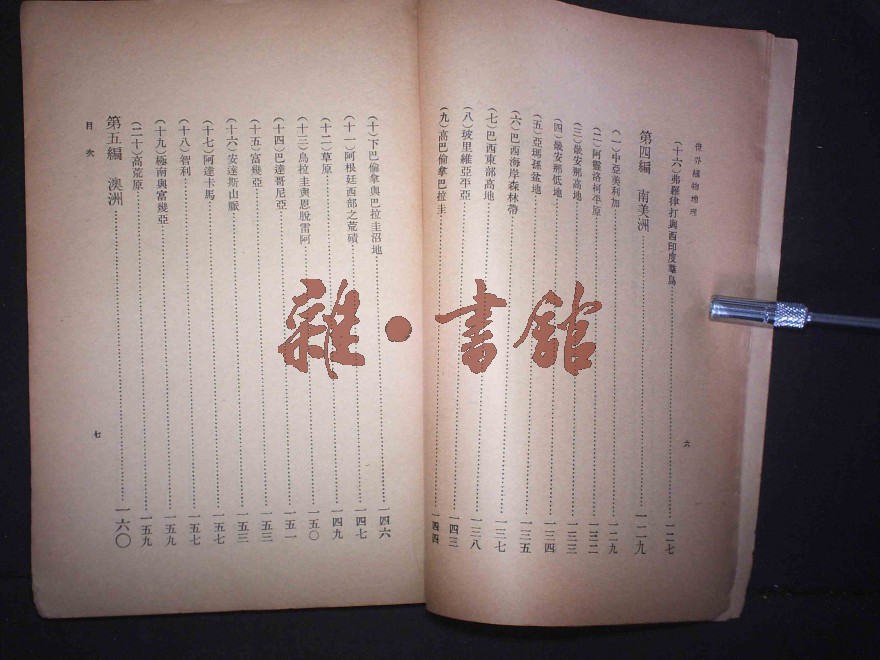 世界植物地理
(十六)弗羅律打與西印度羣島……一二七
第四編 南美洲……一二九
(一)中亞美利加……一二九
(二)阿靈洛柯平原……一三二
(三)歲安那高地……一三三
(四)歲安那低地……一三四
(五)亞瑪孫盆地……一三五
(六)巴西海岸森林帶……一三七
(七)巴西東部高地……一三八
(八)玻里維亞平亞……一四三
(九)高巴倫拿巴拉圭……一四四
六
(十)下巴倫拿與巴拉圭沼地……一四六
(十一)阿根廷西部之荒磧……一四七
(十二)草原……一四九
(十三)烏拉圭與恩脫雷阿……一五〇
(十四)巴達哥尼亞……一五一
(十五)富幾亞……一五三
(十六)安達斯山脈……一五三
(十七)阿達卡馬……一五七
(十八)智利……一五七
(十九)極南與富幾亞……一五九
(二十)高荒原……一五九
第五編 澳洲……一六〇
目次
七
雜·書館